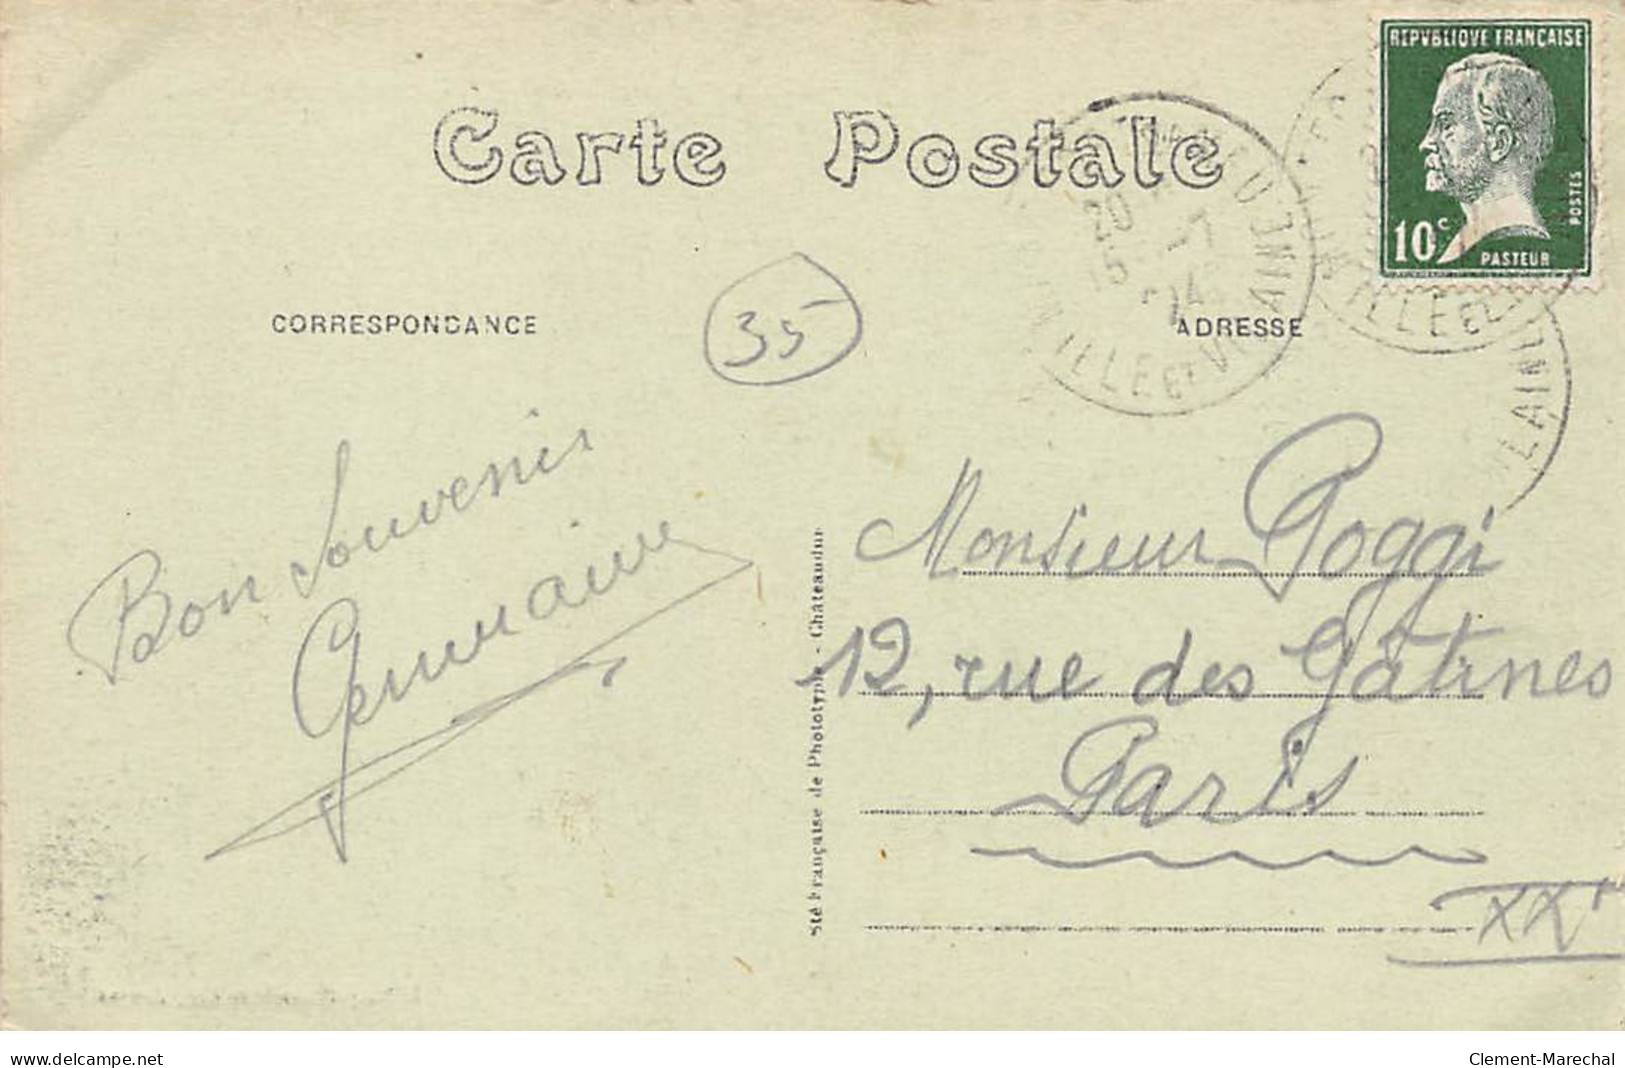 Carte Postale
REPVBLIQVE FRANÇAISE
10c
POSTES
PASTEUR
20
-7
15
24
ILLE ET VILAINE
ILLE ET
LAINE
CORRESPONDANCE
ADRESSE
35
Bon souvenir
Germaine
Sté Française de Phototypie - Châteaudun
Monsieur Poggi
12, rue des Gâtines
Paris
XXe
www.delcampe.net
Clement-Marechal